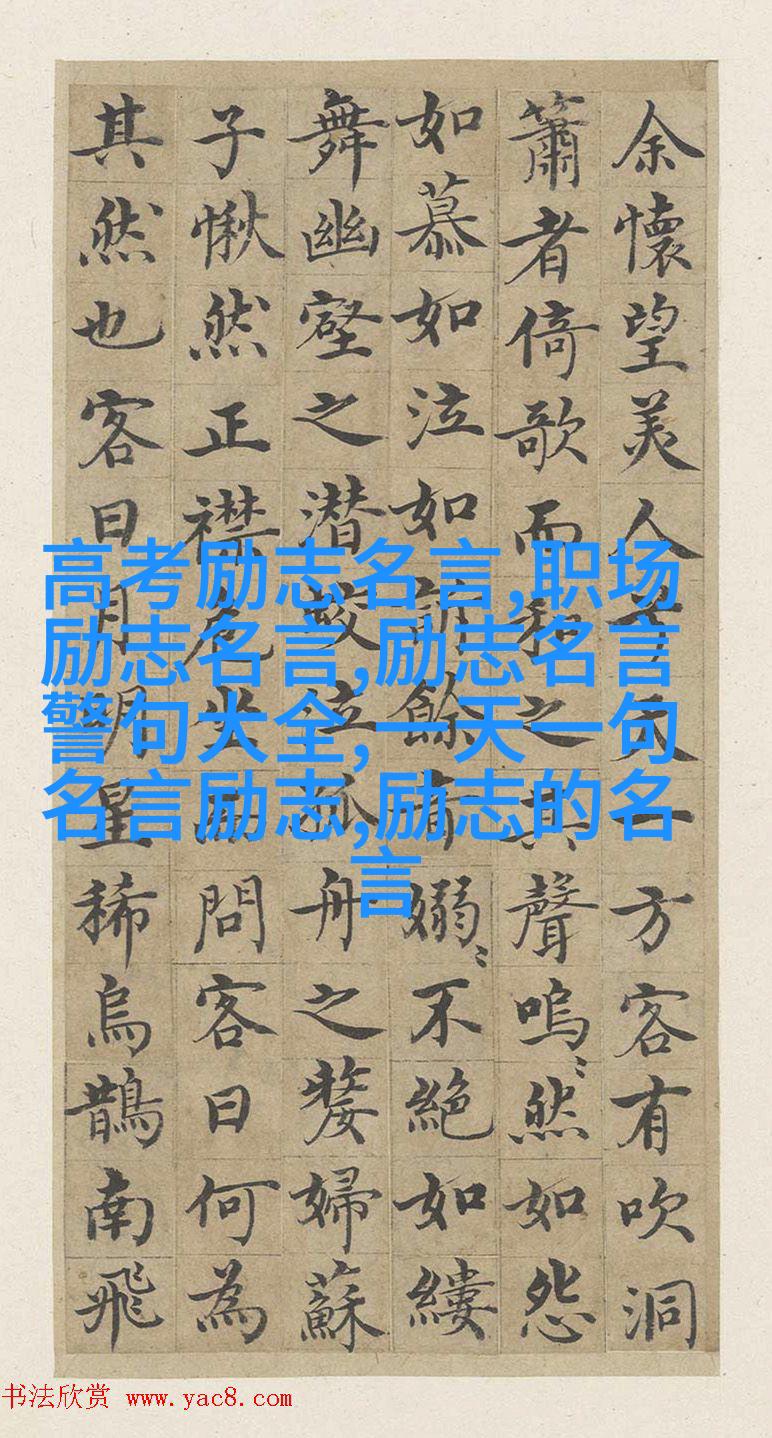 余懷望美人兮天一方客有吹洞
簫者倚歌而和之其聲嗚〻然如怨
如慕如泣如訴餘音嫋〻不絕如縷
舞幽壑之潛蛟泣孤舟之嫠婦蘇
子愀然正襟危坐而問客曰何為
其然也客曰月明星稀烏鵲南飛
高考励志名言,职场
励志名言,励志名言
警句大全,一天一句
名言励志,励志的名
言
书法欣赏 www.yac8.com